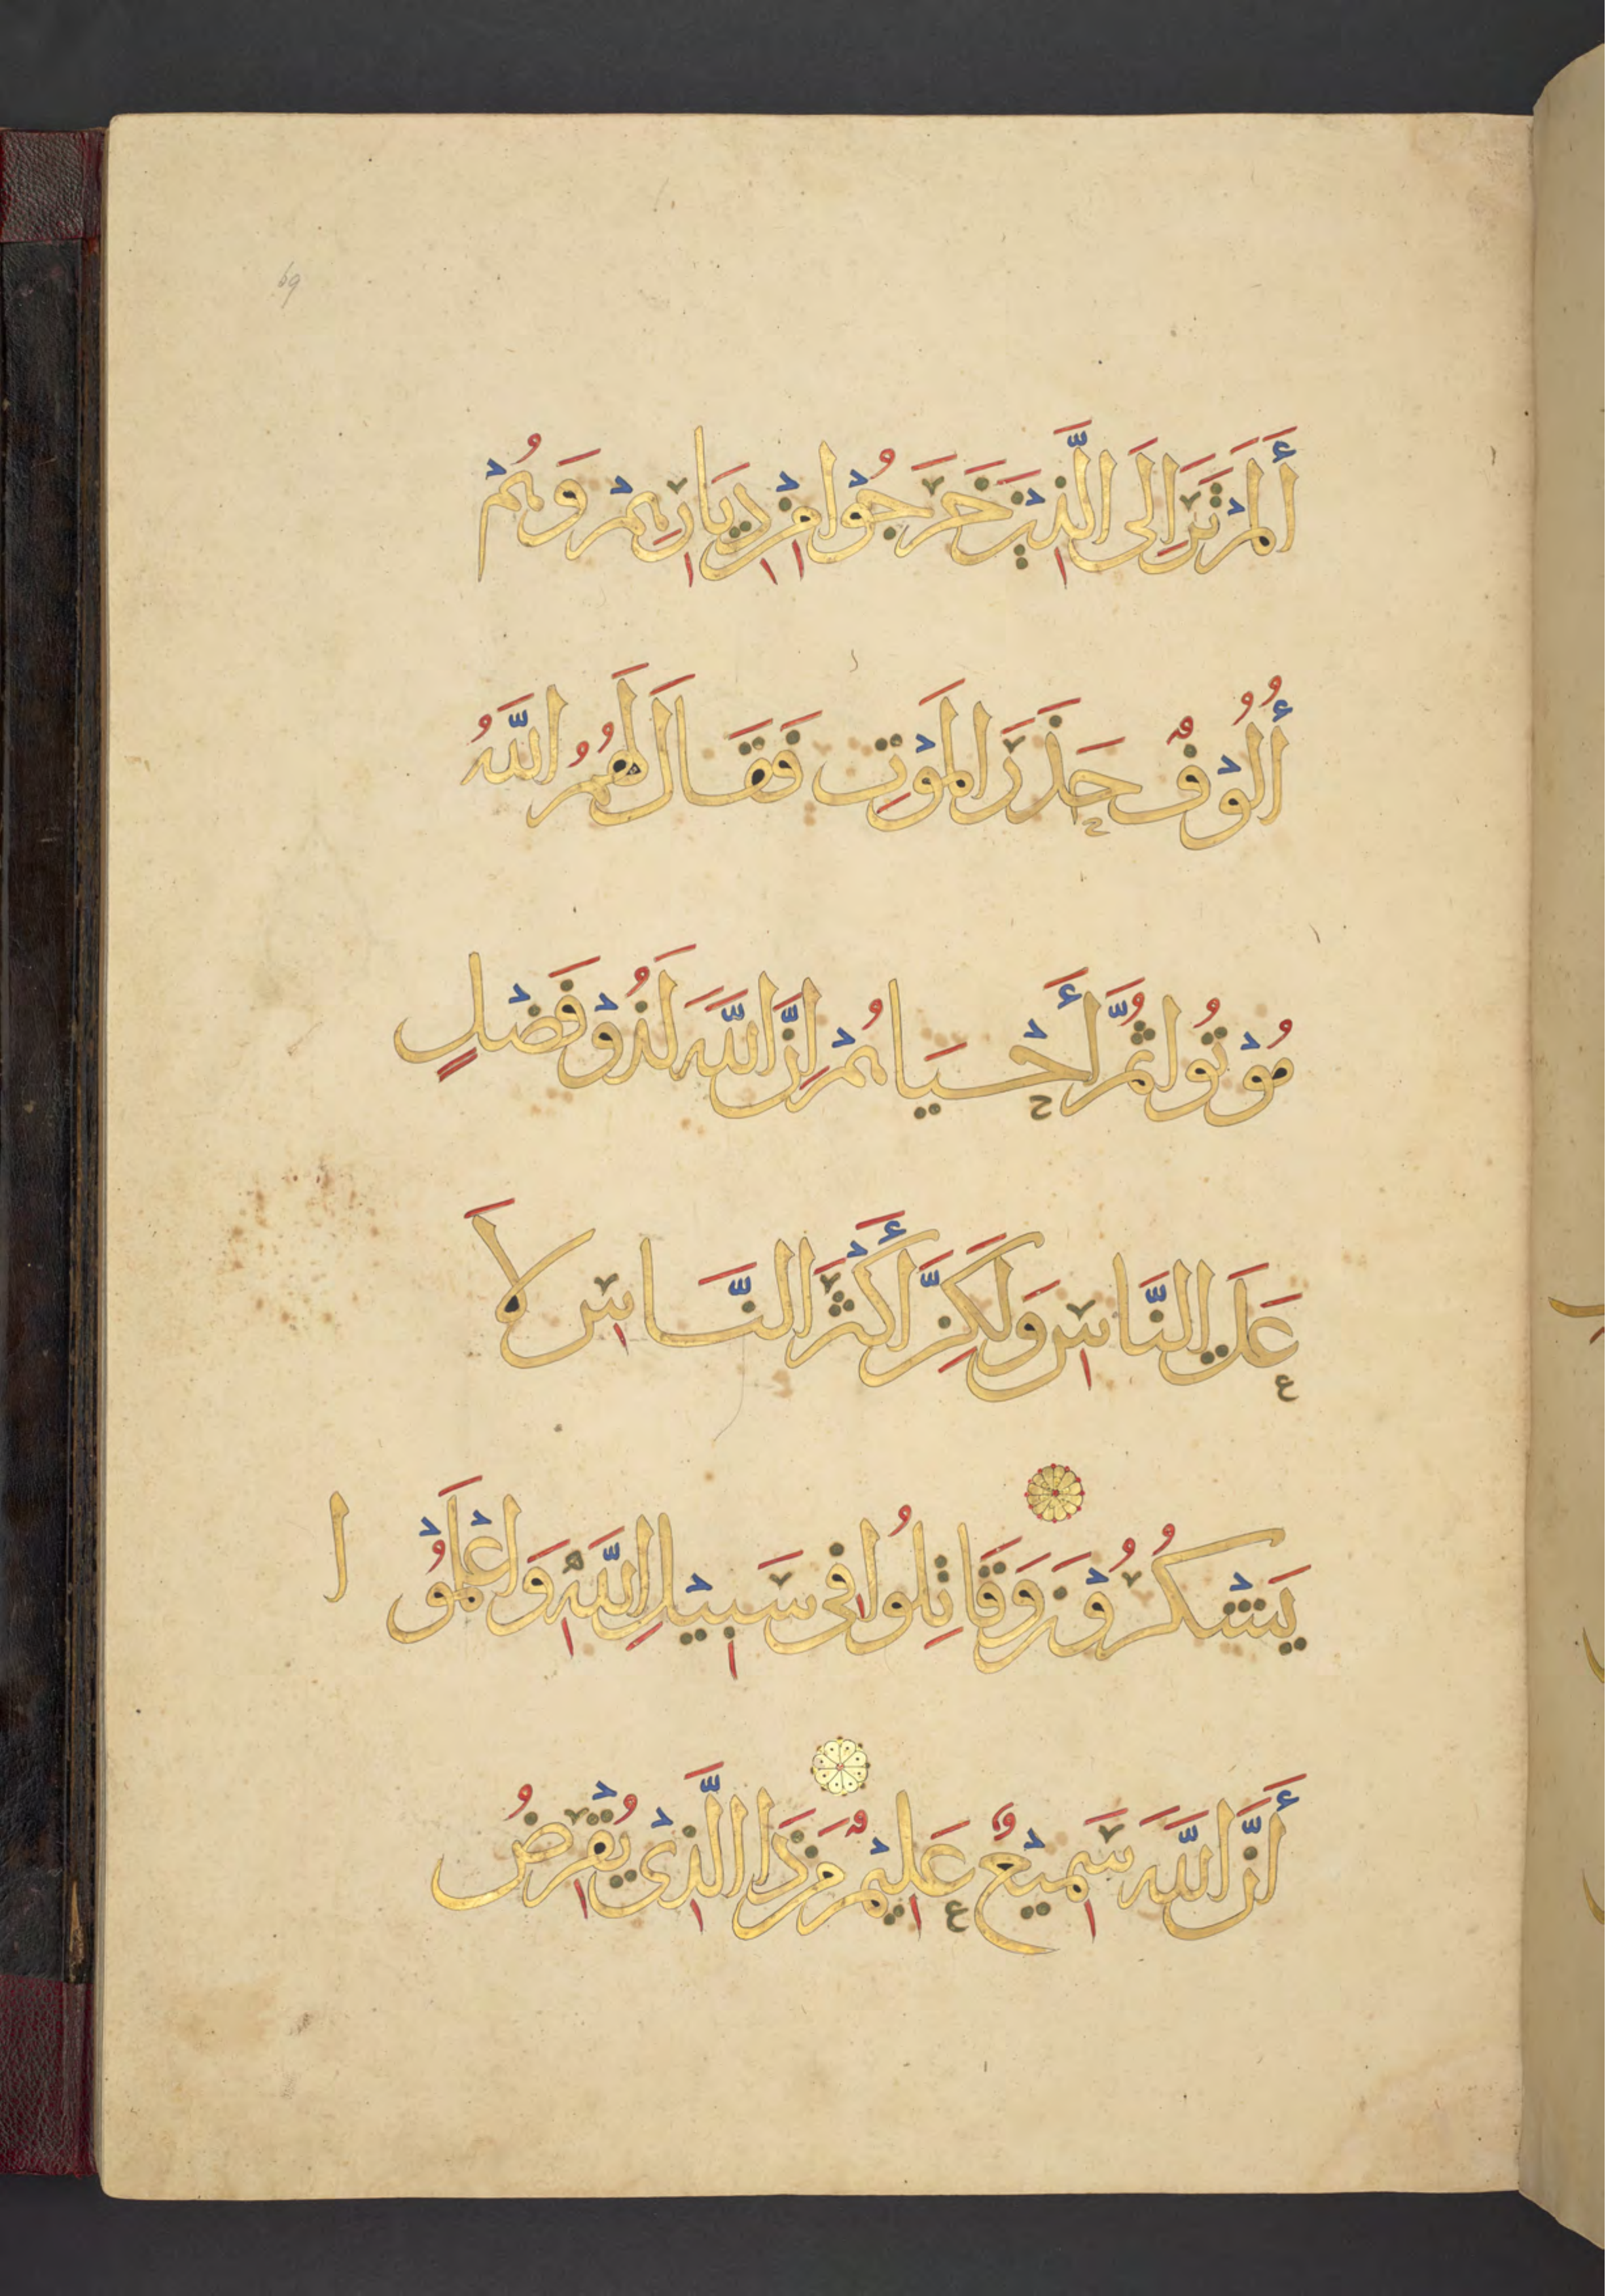 69
أَلَمْ تَرَ إِلَى الَّذِيْنَ خَرَجُوْا مِنْ دِيَارِهِمْ وَهُمْ
أُلُوْفٌ حَذَرَ الْمَوْتِ فَقَالَ لَهُمُ اللَّهُ
مُوْتُوا ثُمَّ أَحْيَاهُمْ إِنَّ اللَّهَ لَذُوْ فَضْلٍ
عَلَى النَّاسِ وَلَكِنَّ أَكْثَرَ النَّاسِ لَا
يَشْكُرُوْنَ وَقَاتِلُوا فِي سَبِيْلِ اللَّهِ وَاعْلَمُوْا
أَنَّ اللَّهَ سَمِيْعٌ عَلِيْمٌ مَنْ ذَا الَّذِيْ يُقْرِضُ